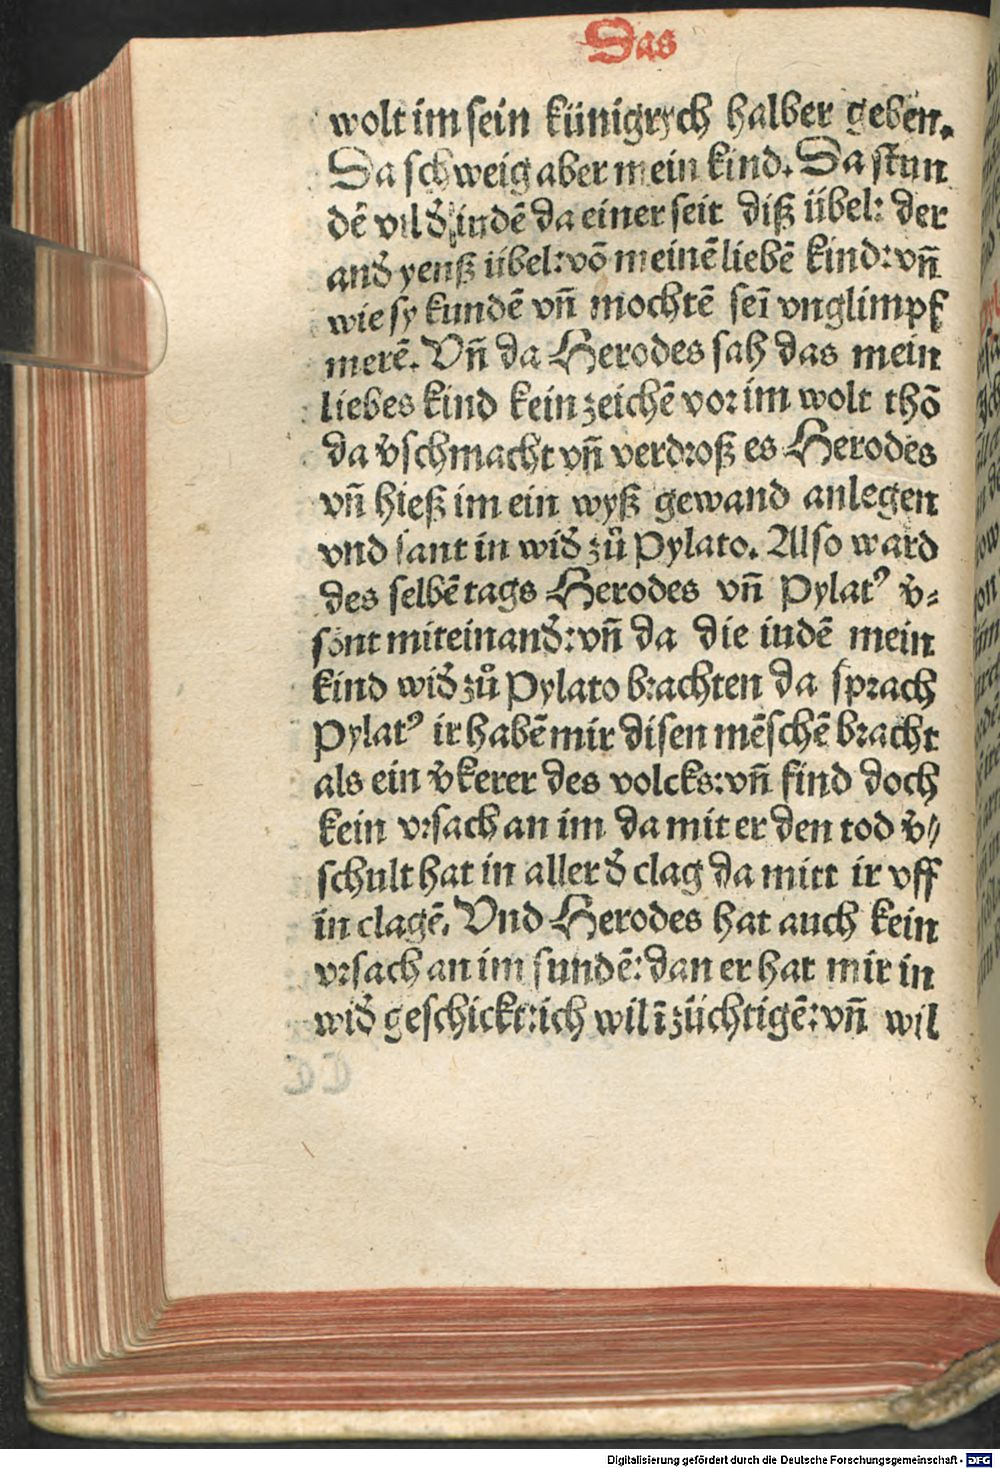 Das
wolt im sein künigrych halber geben.
Da schweig aber mein kind. Da stun
dẽ vil d̕ indẽ da einer seit diß übel: der
and̕ yenß übel: võ meinẽ liebẽ kind: vñ
wie sy kundẽ vñ mochtẽ seĩ vnglimpf
merẽ. Vñ da Herodes sah das mein
liebes kind kein zeichẽ vor im wolt thõ
da v̕schmacht vñ verdroß es Herodes
vñ hieß im ein wyß gewand anlegen
vnd sant in wid̕ zů Pylato. Also ward
des selbẽ tags Herodes vñ Pylatꝰ v̕⸗
sont miteinand̕: vñ da die iudẽ mein
kind wid̕ zů Pylato brachten da sprach
Pylatꝰ ir habẽ mir disen mẽschẽ bracht
als ein v̕kerer des volcks: vñ find doch
kein vrsach an im da mit er den tod v̕//
schult hat in aller d̕ clag da mitt ir vff
in clagẽ. Vnd Herodes hat auch kein
vrsach an im fundẽ: dan er hat mir in
wid̕ geschickt: ich wil ĩ züchtigẽ: vñ wil
Digitalisierung gefördert durch die Deutsche Forschungsgemeinschaft - DFG